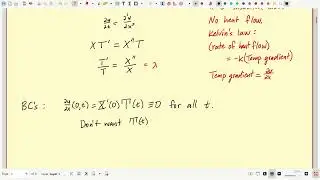 ∂u/∂t = ∂²u/∂x²
XT' = X"T
T'/T = X"/X = λ
No heat flow.
Kelvin's Law:
(rate of heat flow)
= -K(Temp gradient)
Temp gradient = ∂u/∂x
BC's: ∂u/∂x(0,t) = X'(0)T(t) ≡ 0 for all t.
Don't want T(t)